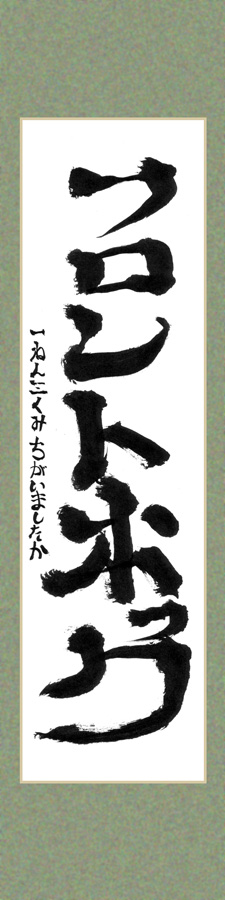 フロントホック
一ねん三くみ ちがいましたか